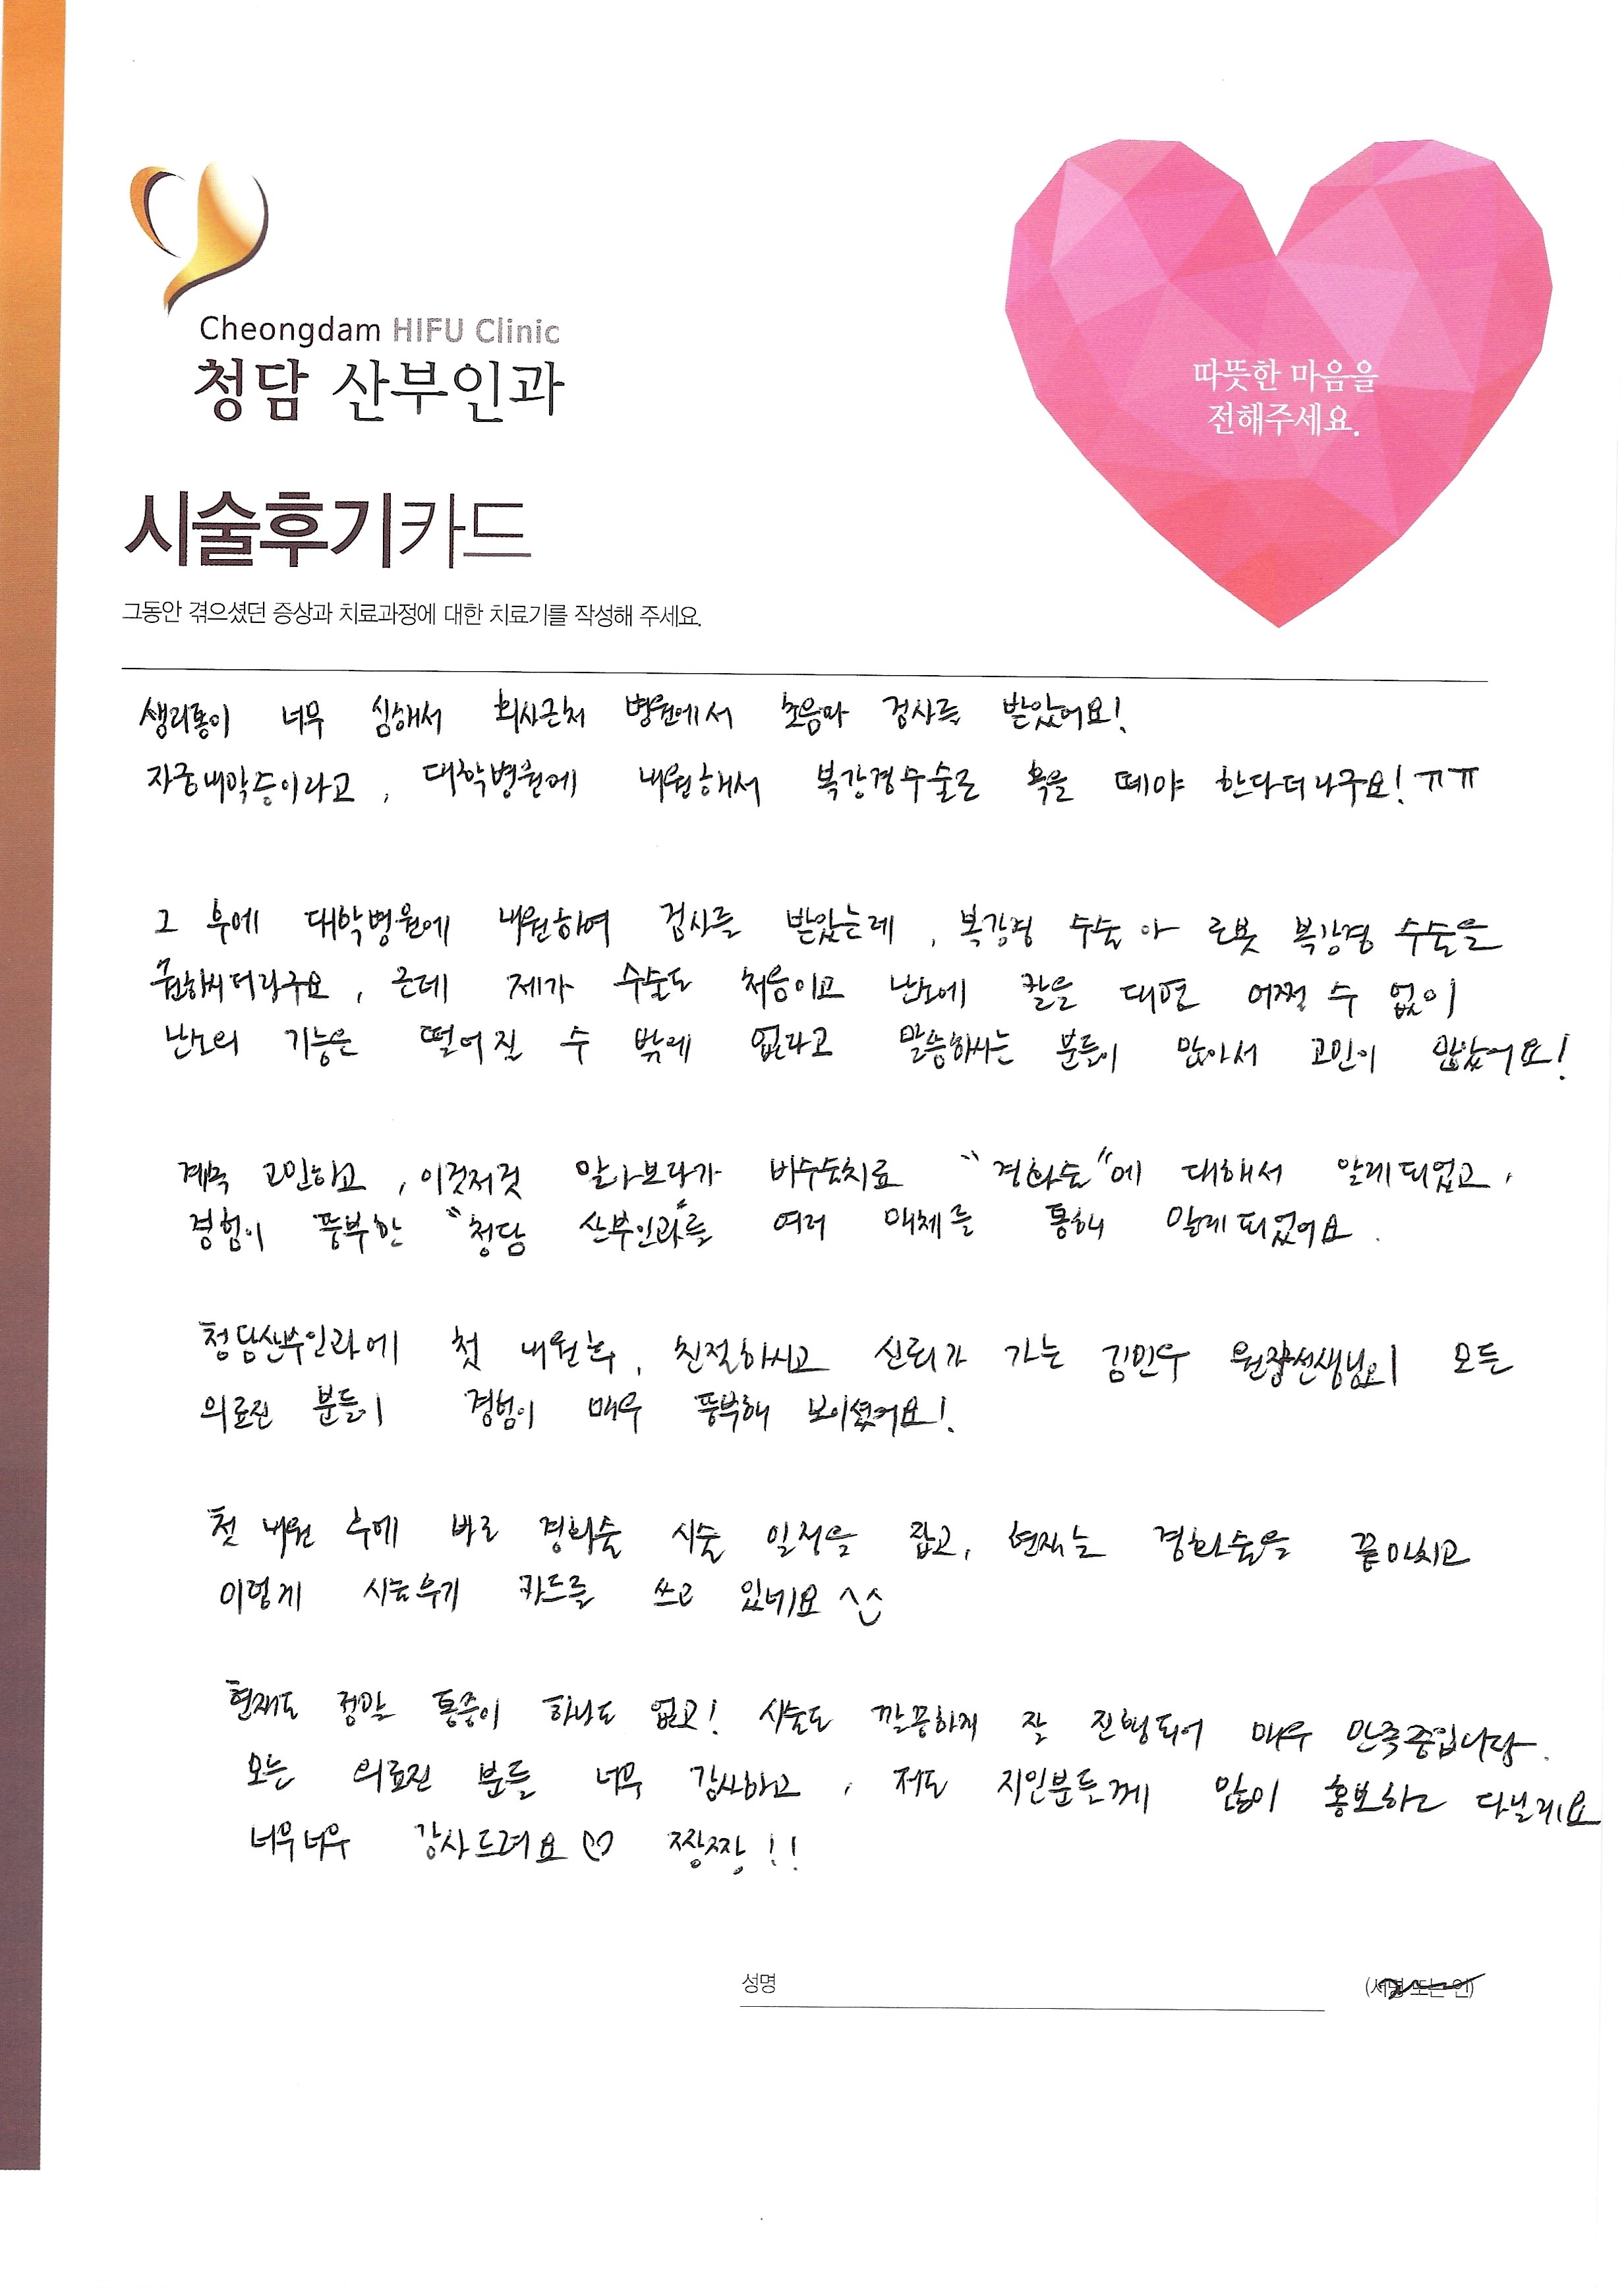 Cheongdam HIFU Clinic
청담 산부인과
따뜻한 마음을
전해주세요.
시술후기카드
그동안 겪으셨던 증상과 치료과정에 대한 치료기를 작성해 주세요.
생리통이 너무 심해서 회사근처 병원에서 초음파 검사를 받았어요!
자궁내막증이라고, 대학병원에 내원해서 복강경수술로 혹을 떼야 한다더라구요! ㅠㅠ
그 후에 대학병원에 내원하여 검사를 받았는데, 복강경 수술 아 로봇 복강경 수술을
권하시더라구요, 근데 제가 수술도 처음이고 난소에 칼을 대면 어쩔 수 없이
난소의 기능은 떨어질 수 밖에 없다고 말씀하시는 분들이 많아서 고민이 많았어요!
계속 고민하고, 이것저것 알아보다가 비수술치료 "경화술"에 대해서 알게되었고,
경험이 풍부한 "청담 산부인과"를 여러 매체를 통해 알게되었어요.
청담산부인과에 첫 내원 후, 친절하시고 신뢰가 가는 김민우 원장선생님이 모든
의료진 분들이 경험이 매우 풍부해 보이셨어요!
첫 내원 후에 바로 경화술 시술 일정을 잡고, 현재는 경화술을 끝마치고
이렇게 시술후기 카드를 쓰고 있네요 ^^
현재도 정말 통증이 하나도 없고! 시술도 깔끔하게 잘 진행되어 매우 만족중입니다.
모든 의료진 분들 너무 감사하고, 저도 지인분들께 많이 홍보하고 다닐게요
너무너무 감사드려요♡ 짱짱!!
성명
(서명 또는 인)